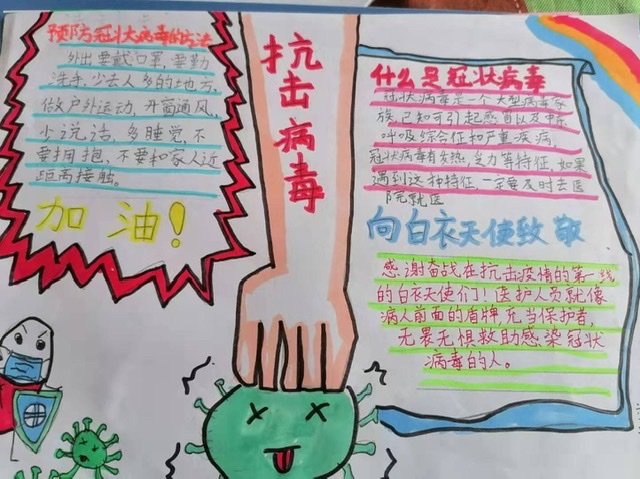 预防冠状病毒的方法
外出要戴口罩,要勤
洗手,少去人多的地方,
做户外运动,开窗通风,
少说话,多睡觉,不
要拥抱,不要和家人近
距离接触。
加油!
抗击病毒
什么是冠状病毒
冠状病毒是一个大型病毒家
族,已知可引起感冒以及中东
呼吸综合征和严重疾病,
冠状病毒有发热,乏力等特征,如果
遇到这种特征,一定要及时去医
院就医
向白衣天使致敬
感谢奋战在抗击疫情的第一线
的白衣天使们!医护人员就像
病人前面的盾牌,充当保护者,
无畏无惧救助感染冠状
病毒的人。